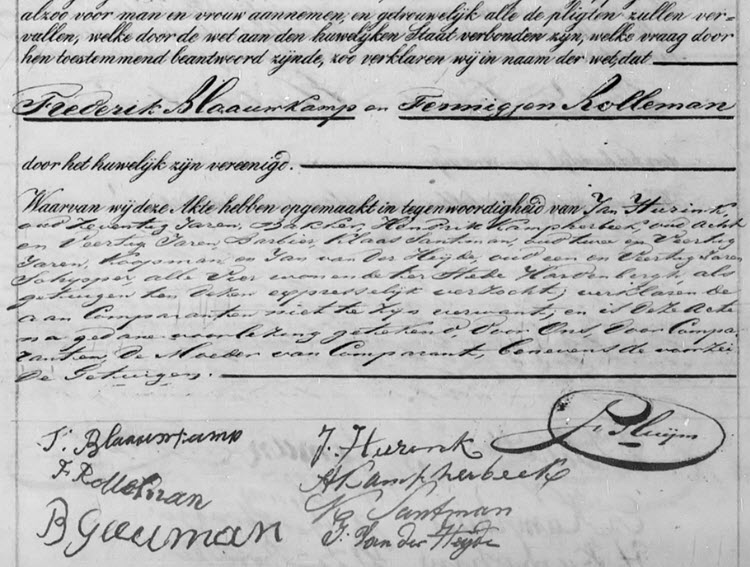 alzoo voor man en vrouw aannemen, en getrouwelijk alle de pligten zullen ver-
vullen, welke door de wet aan den huwelijken Staat verbonden zijn, welke vraag door
hen toestemmend beantwoord zijnde, zoo verklaren wij in naam der wet, dat
Frederik Blaauwkamp en Fennigjen Rolleman
door het huwelijk zijn vereenigd.
Waarvan wij deze Akte hebben opgemaakt in tegenwoordigheid van Jan Hurink,
oud Zeventig Jaren, Bakker, Hendrik Kampherbeek, oud Acht
en Veertig Jaren, Barbier, Klaas Santman, oud twee en Veertig
Jaren, Koopman en Jan van der Heyde, oud een en Veertig Jaren
Schipper alle Vier wonende ter Stede Hardenbergh, als
getuigen ten dezen expresselijk verzocht; verklarende
aan Comparanten niet te zijn verwant; en is deze Acte
na gedane voorlezing getekend, door Ons, door Compa
ranten, de Moeder van Comparant, benevens de voorzei
de Getuigen.
F. Blaauwkamp
F Rolleman
B Gouman
J. Hurink
H Kampherbeek
K Santman
J. Van der Heyde